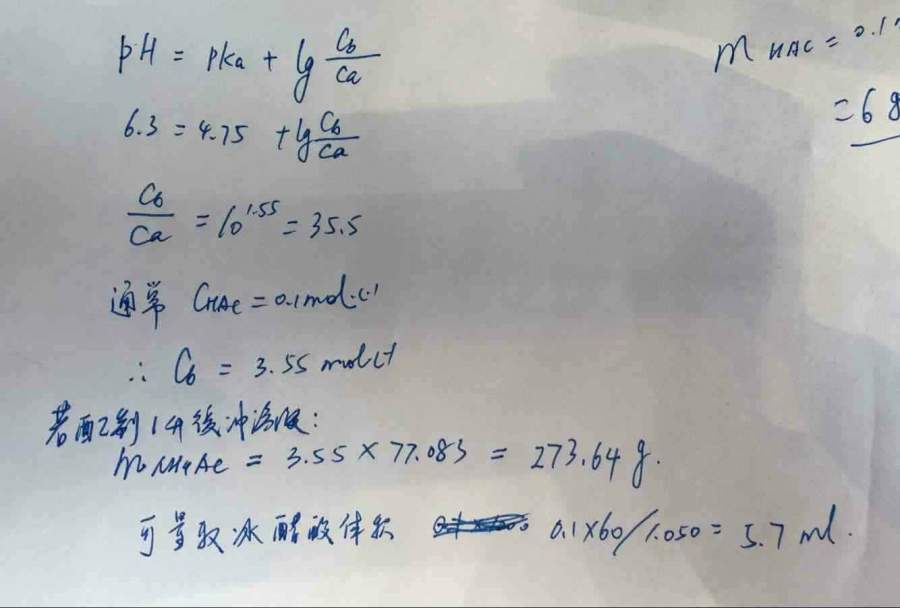 pH = pKa + lg Cb/Ca
6.3 = 4.75 + lg Cb/Ca
Cb/Ca = 10^1.55 = 35.5
通常 CHAc = 0.1mol·L-1
∴ Cb = 3.55 mol L-1
若配制1升缓冲溶液:
mNH4Ac = 3.55 × 77.083 = 273.64 g.
可量取冰醋酸体积 0.1×60/1.050 = 5.7 ml.
m HAC = 0.1
= 6 g